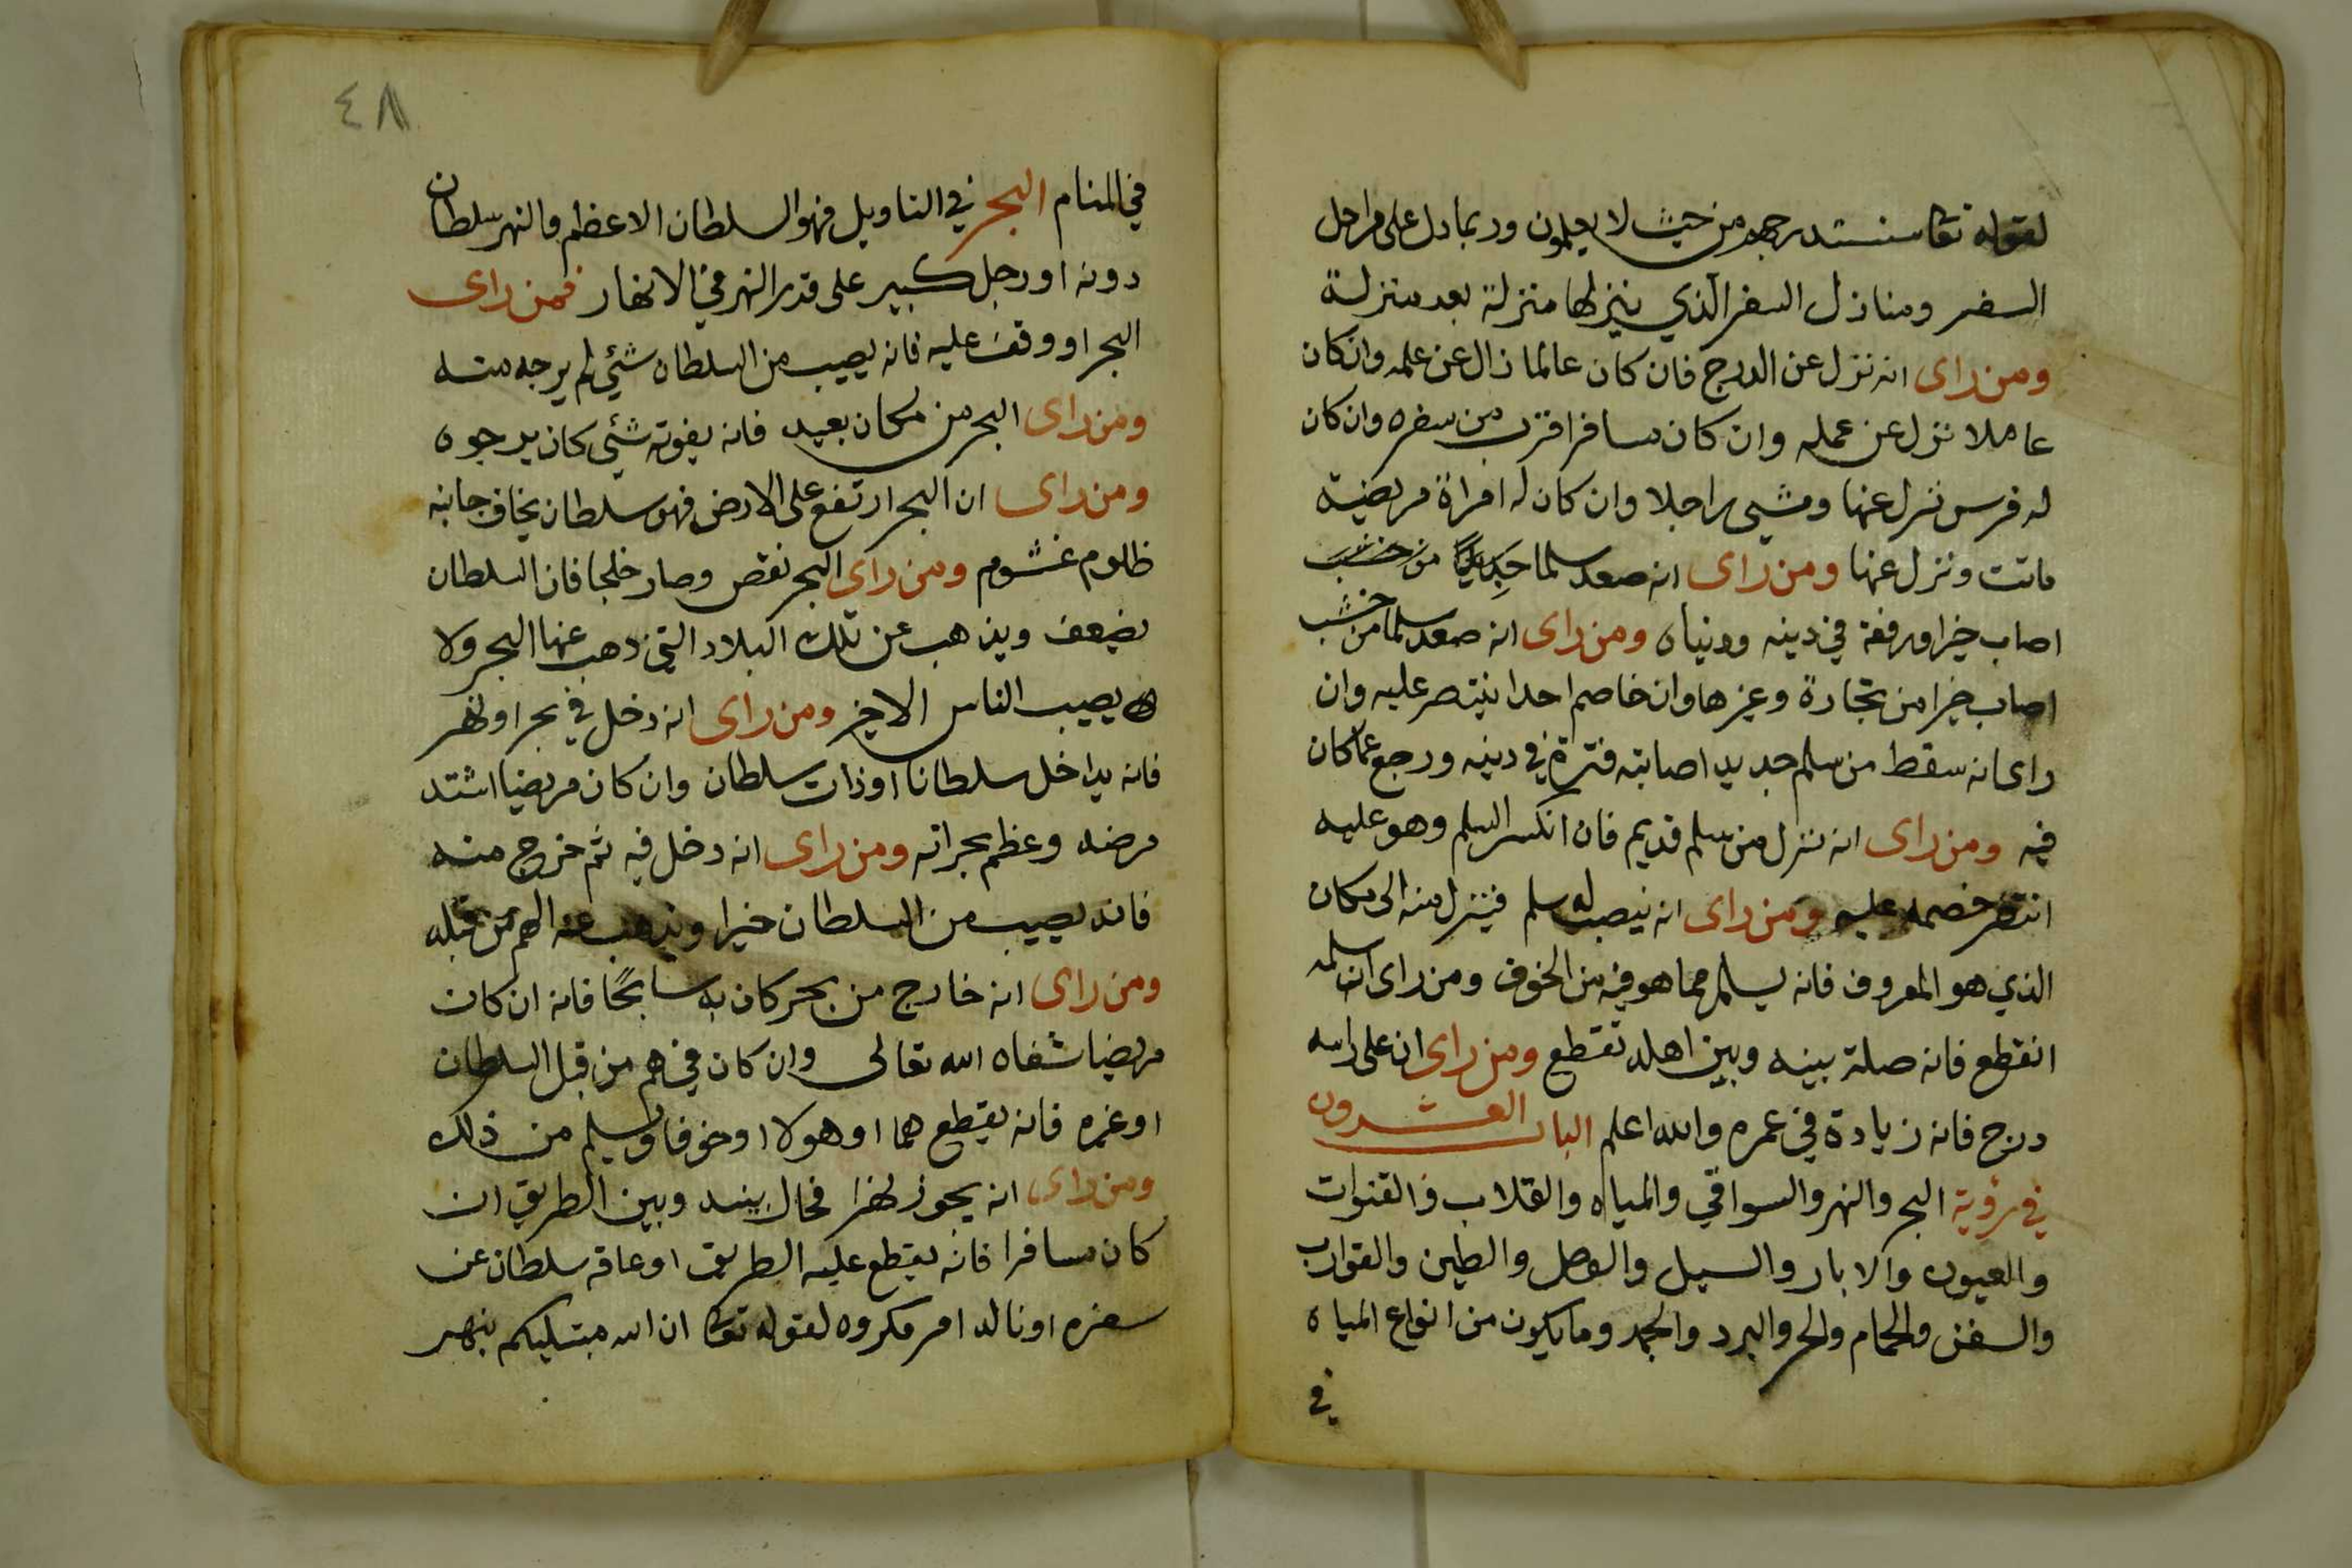 لقوله تعا سنستدرجهم من حيث لا يعلمون وربما دل على مراحل
السفر ومنازل السفر الذي ينزلها منزلة بعد منزلة
ومن راى انه نزل عن الدرج فان كان عالما زال عن علمه وان كان
عاملا نزل عن عمله وان كان مسافرا قرب من سفره وان كان
له فرس نزل عنها ومشى راجلا وان كان له امراة مريضة
ماتت ونزل عنها ومن راى انه صعد سلما جديدا من خشب
اصاب خيرا ورفعة في دينه ودنياه ومن راى انه صعد سلما من خشب
اصاب خيرا من تجارة وغيرها وان خاصم احدا ينتصر عليه وان
راى انه سقط من سلم جديد اصابته فترة في دينه ورجع عما كان
فيه ومن راى انه نزل من سلم قديم فان انكسر السلم وهو عليه
انتصر خصمه عليه ومن راى انه ينصب له سلم فينزل منه الى مكان
الذي هو المعروف فانه يسلم مما هو فيه من الخوف ومن راى ان سلمه
انقطع فانه صلة بينه وبين اهله تقطع ومن راى ان على راسه
درج فانه زيادة في عمره والله اعلم الباب العشرون
في رؤية البحر والنهر والسواقي والمياه والقلاب والقنوات
والعيون والابار والسيل والوحل والطين والقوارب
والسفن والحمام والحر والبرد والجمد وما يكون من انواع المياه
في
٤٨
في المنام البحر في التاويل فهو السلطان الاعظم والنهر سلطان
دونه او رجل كبير على قدر النهر في الانهار فمن راى
البحر او وقف عليه فانه يصيب من السلطان شئي لم يرجه منه
ومن راى البحر من مكان بعيد فانه يفوته شئي كان يرجوه
ومن راى ان البحر ارتفع على الارض فهو سلطان يخاف جانبه
ظلوم غشوم ومن راى البحر نقص وصار خلجا فان السلطان
يضعف ويذهب عن تلك البلاد التي ذهب عنها البحر ولا
يصيب الناس الاخير ومن راى انه دخل في بحر او نهر
فانه يداخل سلطانا او ذات سلطان وان كان مريضا اشتد
مرضه وعظم بحرانه ومن راى انه دخل فيه ثم خرج منه
فانه يصيب من السلطان خيرا ويذهب عنه الهم من قبله
ومن راى انه خارج من بحر كان به سابحًا فانه ان كان
مريضا شفاه الله تعالى وان كان في هم من قبل السلطان
او غيره فانه يقطع هما او هولا او خوفا ويسلم من ذلك
ومن راى انه يجوز نهرا فحال بينه وبين الطريق ان
كان مسافرا فانه يقطع عليه الطريق او عاقه سلطان عن
سفره او ناله امر مكروه لقوله تعا ان الله مبتليكم بنهر